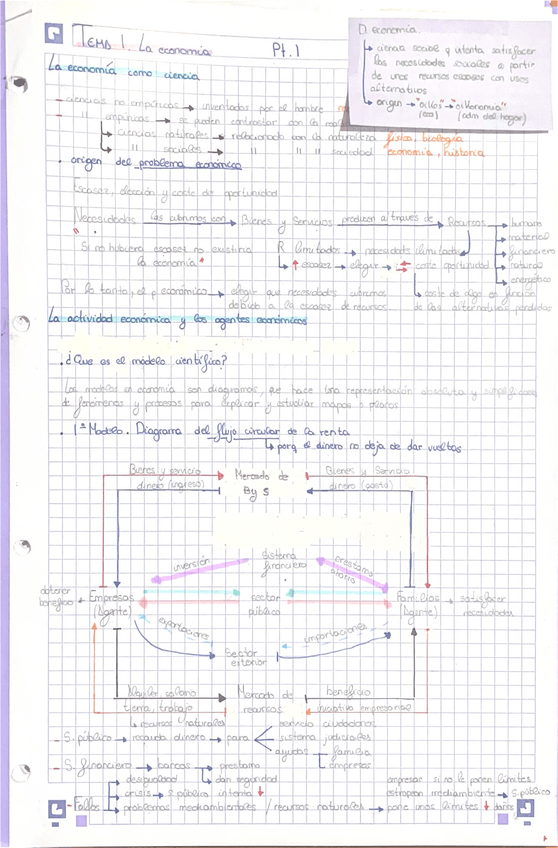 TEMA 1. La economía
Pt.1
D. economía
ciencia social q intenta satisfacer
las necesidades sociales a partir
de unos recursos escasos con usos
alternativos
origen → "oikos" → "oikonomia"
(eco) (adm del hogar)
La economía como ciencia
- ciencias no empíricas → inventadas por el hombre
" empíricas → se pueden contrastar con la
ciencias naturales → relacionado con la naturaleza física, biología
" sociales → " " " sociedad economía, historia
. origen del problema económico
Escasez, elección y coste de oportunidad
Necesidades las cubrimos con → Bienes y Servicios producen a traves de → Recursos → humano
→ material
→ financiero
→ natural
→ energético
Si no hubiera escasez no existiria
la economía
R limitados → necesidades ilimitadas
↑ escasez → elegir → coste oportunidad
Por lo tanto, el p. económico → elegir que necesidades cubrimos
debido a la escasez de recursos
coste de algo en función
de las alternativas perdidas
La actividad económica y los agentes económicos
. ¿Que es el modelo científico?
Los modelos en economía son diagramas, que hace una representación absoluta y
de fenómenos y procesos para explicar y estudiar mapas o planos
. 1º Modelo. Diagrama del flujo circular de la renta
porq el dinero no deja de dar vueltas
Bienes y servicio
dinero (ingreso)
Mercado de
B y S
Bienes y Servicio
dinero (gasto)
inversión
Sistema
financiero
prestamo
ahorro
obtener
beneficio
Empresas
(Agente)
sector
público
Familias
(Agente)
satisfacer
necesidades
exportaciones
importaciones
Sector
exterior
Alquiler, salario
tierra, trabajo
recursos naturales
Mercado de
recursos
beneficio
iniciativa empresarial
- S. público → recauda dinero → para
servicio ciudadanos
sistema judiciales
ayudas
familia
empresas
- S. financiero → bancos
prestamo
dan seguridad
- Fallos
desigualdad
crisis → S público intenta ↓
problemas medioambientales / recursos naturales → pone unos limites ↓ daños
empresar si no le ponen limites
estropean medioambiente → S. público